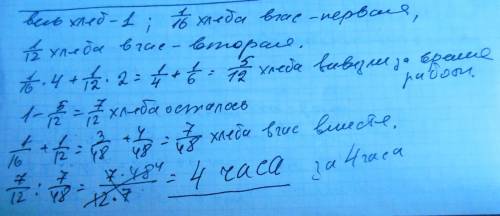 весь хлеб-1 ; 1/16 хлеба в час - первая,
1/12 хлеба в час - вторая.
1/16 · 4 + 1/12 · 2 = 1/4 + 1/6 = 5/12 хлеба вывезли за время работы.
1 - 5/12 = 7/12 хлеба осталось
1/16 + 1/12 = 3/48 + 4/48 = 7/48 хлеба в час вместе.
7/12 : 7/48 = 7·48 4/12·7 = 4 часа за 4 часа